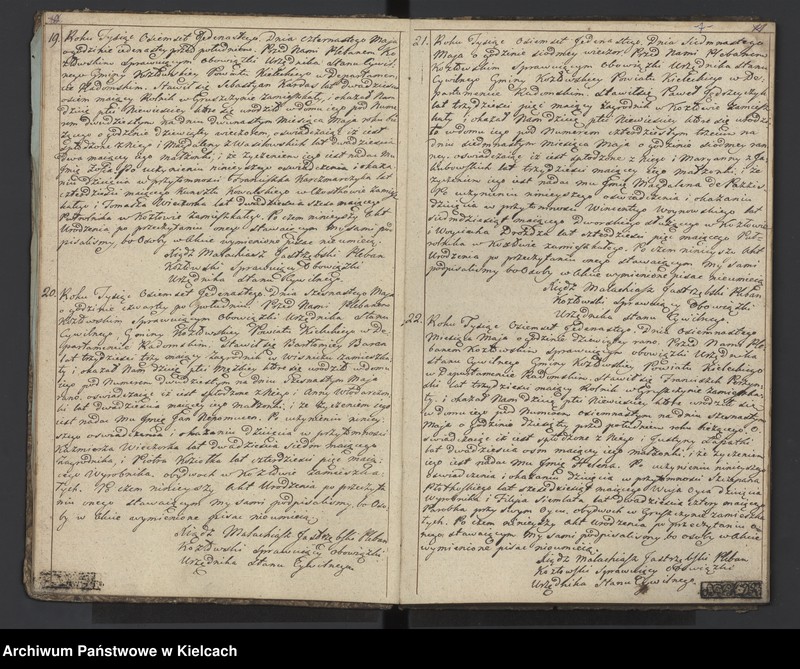 19. Roku Tysiąc Osiemset Jedenastego, Dnia czternastego Maja
o godzinie jedenastej przed południem. Przed Nami Plebanem Ko
złowskim sprawującym Obowiązki Urzędnika Stanu Cywil
nego Gminy Kozłowskiej Powiatu Kieleckiego w Departamen
cie Radomskim. Stawił się Sebastyan Kardas lat dwadzieścia
osiem mający Rolnik w Gruszczynie zamieszkały, i okazał Nam
Dziecię płci Niewieściej, które się urodziło w domu iego pod Nume
rem dwudziestym na dniu dwunastym Miesiąca Maja roku bie
żącego o godzinie dziewiątej wieczorem, oświadczając iż iest
spłodzone z Niego i Magdaleny z
dwa mającej iego małżonki; i że życzeniem iego iest nadać mu
Imię Zofia. Po uczynieniu niniejszego oświadczenia i okaza
niu dziecięcia w przytomności
czterdzieści mającego Kunsztu Kowalskiego w
kałego i Tomasza Wieczorka lat dwadzieścia sześć mającego
Parobka w Kozłowie zamieszkałego. Po czem niniejszy Akt
Urodzenia po przeczytaniu onego stawającym My sami pod
pisaliśmy, bo Osoby w Akcie wymienione pisać nieumieją.
Xiądz Małachiasz Jastrzębski Pleban
Kozłowski Sprawujący Obowiązki
Urzędnika Stanu Cywilnego.
20. Roku Tysiąc Osiemset Jedenastego, Dnia szesnastego Maja
o godzinie czwartej po południu. Przed Nami Plebanem
Kozłowskim sprawującym Obowiązki Urzędnika Stanu
Cywilnego Gminy Kozłowskiej Powiatu Kieleckiego w De
partamencie Radomskim, Stawił się Bartłomiej Baran
lat trzydzieści trzy mający zagrodnik w Wiśniczu zamieszka
ły i okazał Nam Dziecię płci Męzkiej które się urodziło w domu
iego pod Numerem dwudziestym na dniu szesnastym Maja
rano, oświadczając iż iest spłodzone z Niego i Anny Włodarczy
ki lat dwadzieścia mającej iego Małżonki; i że życzeniem iego
iest nadać Mu Imię Jan Nepomucen. Po uczynieniu niniej
szego oświadczenia i okazaniu Dziecięcia w przytomności
Kazimierza Wieczorka lat dwadzieścia siedm mającego
zagrodnika i Piotra Kozioła lat czterdzieści pięć mają
cego Wyrobnika, obydwóch w Kozłowie zamieszka
łych. Po czem niniejszy Akt Urodzenia po przeczyta
niu onego stawającym My sami podpisaliśmy, bo Oso
by w Akcie wymienione pisać nieumieją.
Xiądz Małachiasz Jastrzębski Pleban
Kozłowski Sprawujący Obowiązki
Urzędnika Stanu Cywilnego
21. Roku Tysiąc Osiemset Jedenastego, Dnia Siedmnastego
Maja o godzinie siódmej wieczor. Przed Nami Plebanem
Kozłowskim sprawującym Obowiązki Urzędnika Stanu
Cywilnego Gminy Kozłowskiej Powiatu Kieleckiego w De
partamencie Radomskim. Stawił się Paweł Jędrzejczyk
lat trzydzieści pięć mający zagrodnik w Kozłowie zamiesz
kały i okazał Nam Dziecię płci Niewieściej które się urodzi
ło w domu iego pod Numerem czterdziestym trzecim na
dniu siedmnastym Miesiąca Maja o godzinie siódmej ran
nej, oświadczając iż iest spłodzone z Niego i Maryanny z Ja
kubowskich lat trzydzieści mającej iego Małżonki; i że
życzeniem iego iest nadać mu Imię Magdalena de Pazzis.
Po uczynieniu niniejszego oświadczenia i okazaniu
dziecięcia w przytomności Wincentego Woynowskiego lat
siedmdziesiąt mającego Dworskiego sługi w Kozłowie
i Woyciecha Drożdża lat czterdzieści pięć mającego Pa
robka w Kozłowie zamieszkałego. Po czem niniejszy Akt
Urodzenia po przeczytaniu onego stawającym My sami
podpisaliśmy bo Osoby w Akcie wymienione pisać nieumieją
Xiądz Małachiasz Jastrzębski Pleban
Kozłowski sprawujący Obowiązki
Urzędnika Stanu Cywilnego.
22. Roku Tysiąc Osiemset Jedenastego Dnia Osiemnastego
Miesiąca Maja o godzinie dziewiątej rano. Przed Nami Ple
banem Kozłowskim sprawującym obowiązki Urzędnika
Stanu Cywilnego Gminy Kozłowskiej Powiatu Kieleckiego
w Departamencie Radomskim, Stawił się Franciszek
lat trzydzieści mający Rolnik w Gruszczynie zamieszka
ły, i okazał Nam dziecię płci Niewieściej które urodziło się
w domu iego pod Numerem osiemnastym na dniu szesnastym
Maja o godzinie dziesiątej przed południem roku bieżącego. O
świadczając iż iest spłodzone z Niego i Justyny
lat dwadzieścia osm mającej iego małżonki; i że życzeniem
iego iest nadać Mu Imię Helena. Po uczynieniu niniejszego
oświadczenia i okazaniu dziecięcia w przytomności Szczepana
lat czterdzieści mającego Wuja Oyca dziecięcia
Wyrobnika i Filipa lat dwadzieścia cztery mającego
Parobka przy swym Oycu, obydwóch w Gruszczynie zamieszka
łych. Po czem niniejszy Akt urodzenia po przeczytaniu o
nego stawającym My sami podpisaliśmy bo osoby w Akcie
wymienione pisać nieumieją.
Xiądz Małachiasz Jastrzębski Pleban
Kozłowski Sprawujący Obowiązki
Urzędnika Stanu Cywilnego.
Archiwum Państwowe w Kielcach